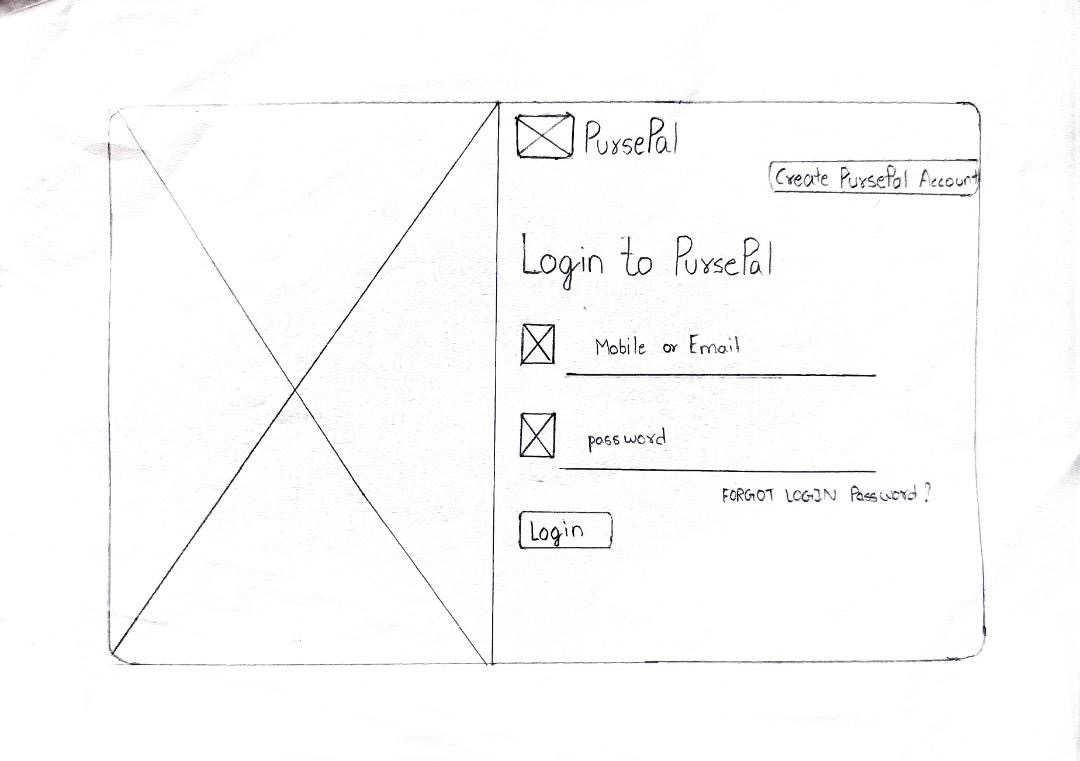 PursePal
Create PursePal Account
Login to PursePal
Mobile or Email
password
FORGOT LOGIN Password?
Login